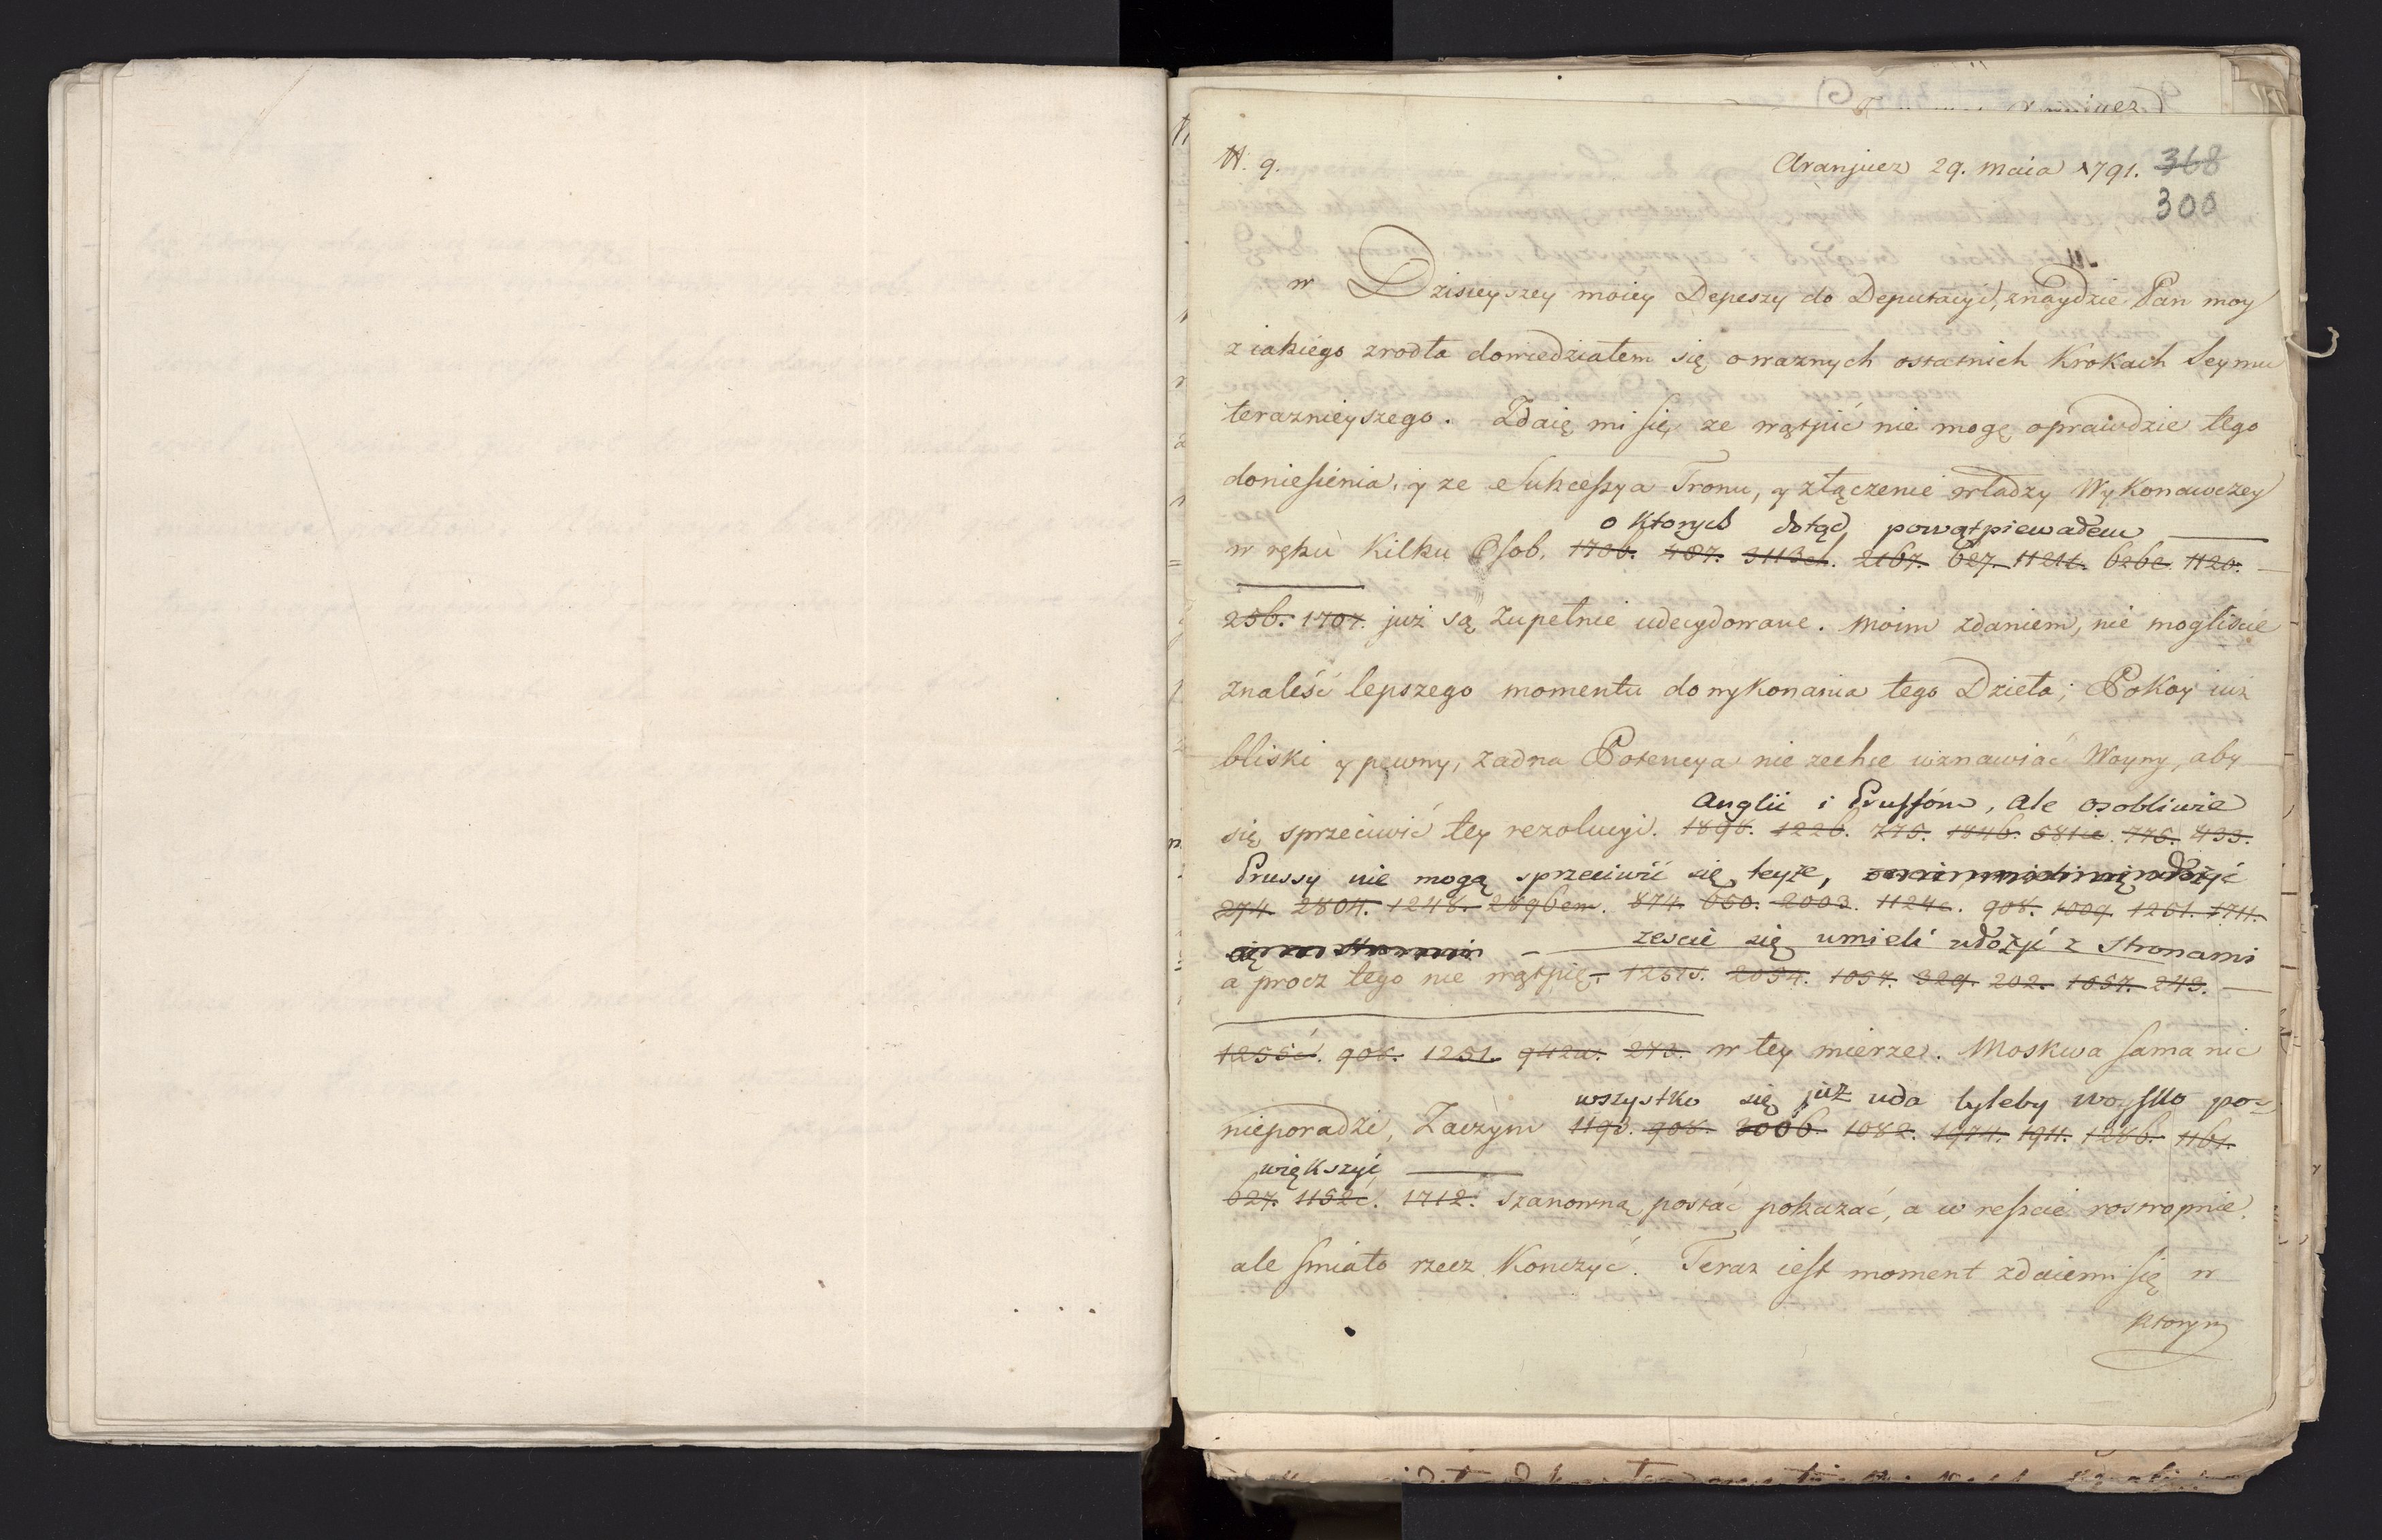 N. 9.
Aranjuez 29. maia 1791. 368
300
w Dzisieyszey moiey Depeszy do Deputacyi, znaydzie Pan moy
z iakiego zrodła dowiedziałem się o waznych ostatnich Krokach Seymu
teraznieyszego. Zdaię mi się ze wątpić nie mogę o prawdzie tego
doniesienia, y ze Sukcessya Tronu, y złączenie władzy Wykonawczey
o ktorych dotąd powątpiewałem
w ręku Kilku Osob. 1706. 487. 3113ch. 2167. 627. 1121t. 626e. 1120.
256. 1707. już są zupełnie udecydowane. Moim zdaniem, nie mogliscie
znaleść lepszego momentu do wykonania tego Dzieła; Pokoy iuz
bliski y pewny, zadna Potencya nie zechce wznawiać Woyny, aby
Anglii i Prussom, ale osobliwie
się sprzeciwić tey rezolucyi. 1898. 1226. 775. 1846. 581ie. 775. 433.
Prussy nie mogą sprzeciwić się teyże,
274. 2804. 1248. 2896em. 874. 650. 2003. 1124c. 908. 1009. 1251. 1711.
zescie się umieli ułożyć z Stronami
a procz tego nie wątpię 1251s. 2034. 1057. 329. 202. 1057. 243.
1255ć. 908. 1251. 942a. 273. w tey mierze. Moskwa sama nic
wszystko się już uda byleby woysko po-
nieporadzi, Zaczym 1193. 908. 3006. 1082. 1974. 1911. 1286. 1161.
większyć
627. 1152ć. 1712. szanowną postać pokazać, a w reszcie rostropnie
ale smiało rzecz Konczyć. Teraz iest moment zdaiemi się w
ktorym